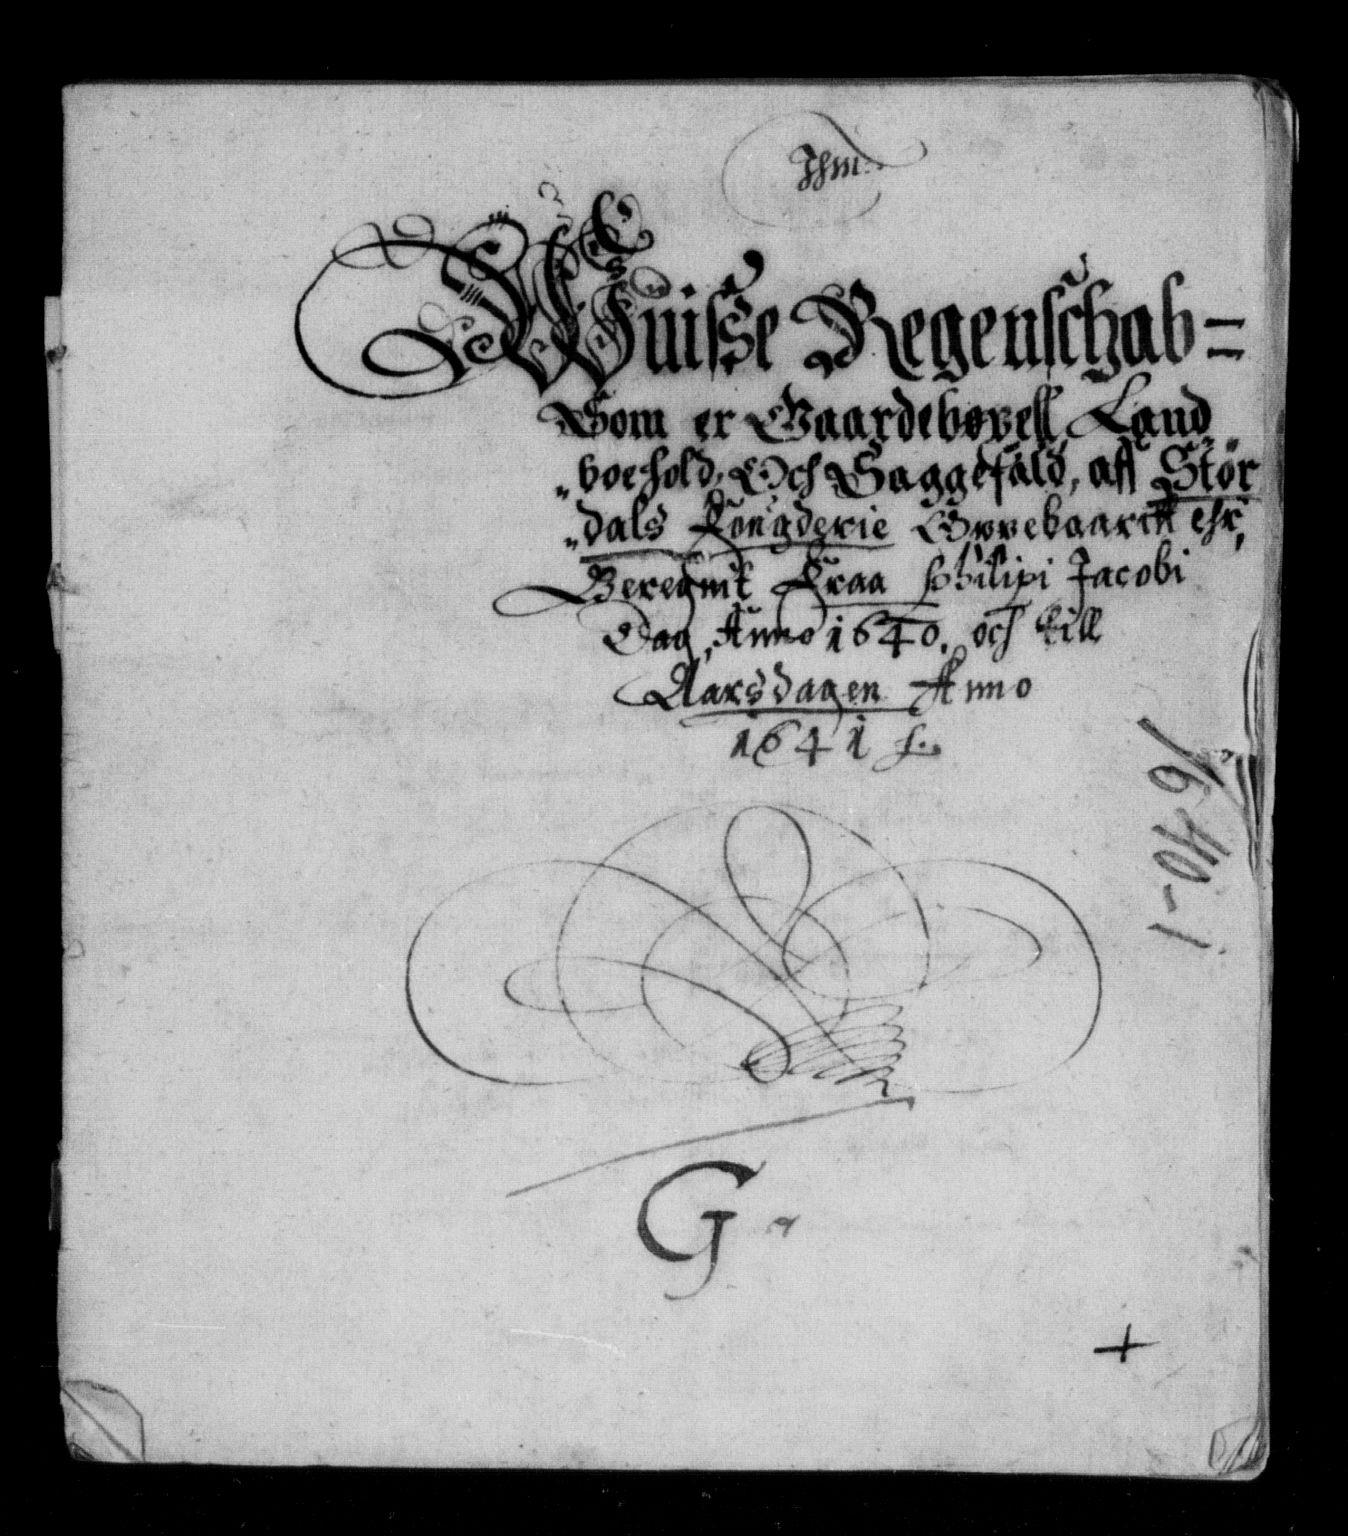 Ihm:
Wuisse Regenschab=
Som er Gaardebøxell Land
"boehold, Och Saggefald, aff Stör
"dals Fougderie Oppebaaret ehr,
Beregnit Fraa Philipi Jacobi
Dag, Anno 1640. och till
Aarsdagen Anno
1641
1640-1
G
+